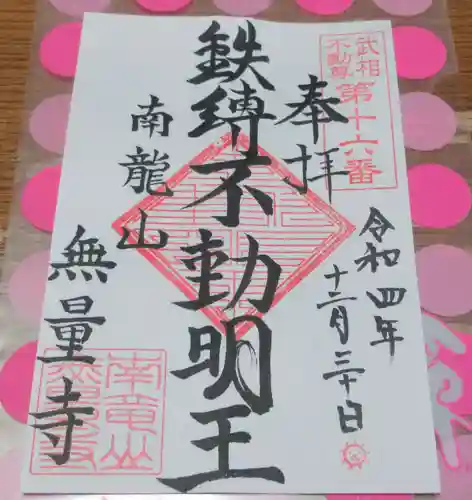 武相
不動尊
第十六番
奉拝
令和四年
十二月三十日
鉄縛不動明王
南龍山
無量寺